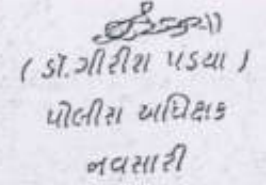 ( ડૉ. ગીરીશ પંડયા )
પોલીસ અધિક્ષક
નવસારી